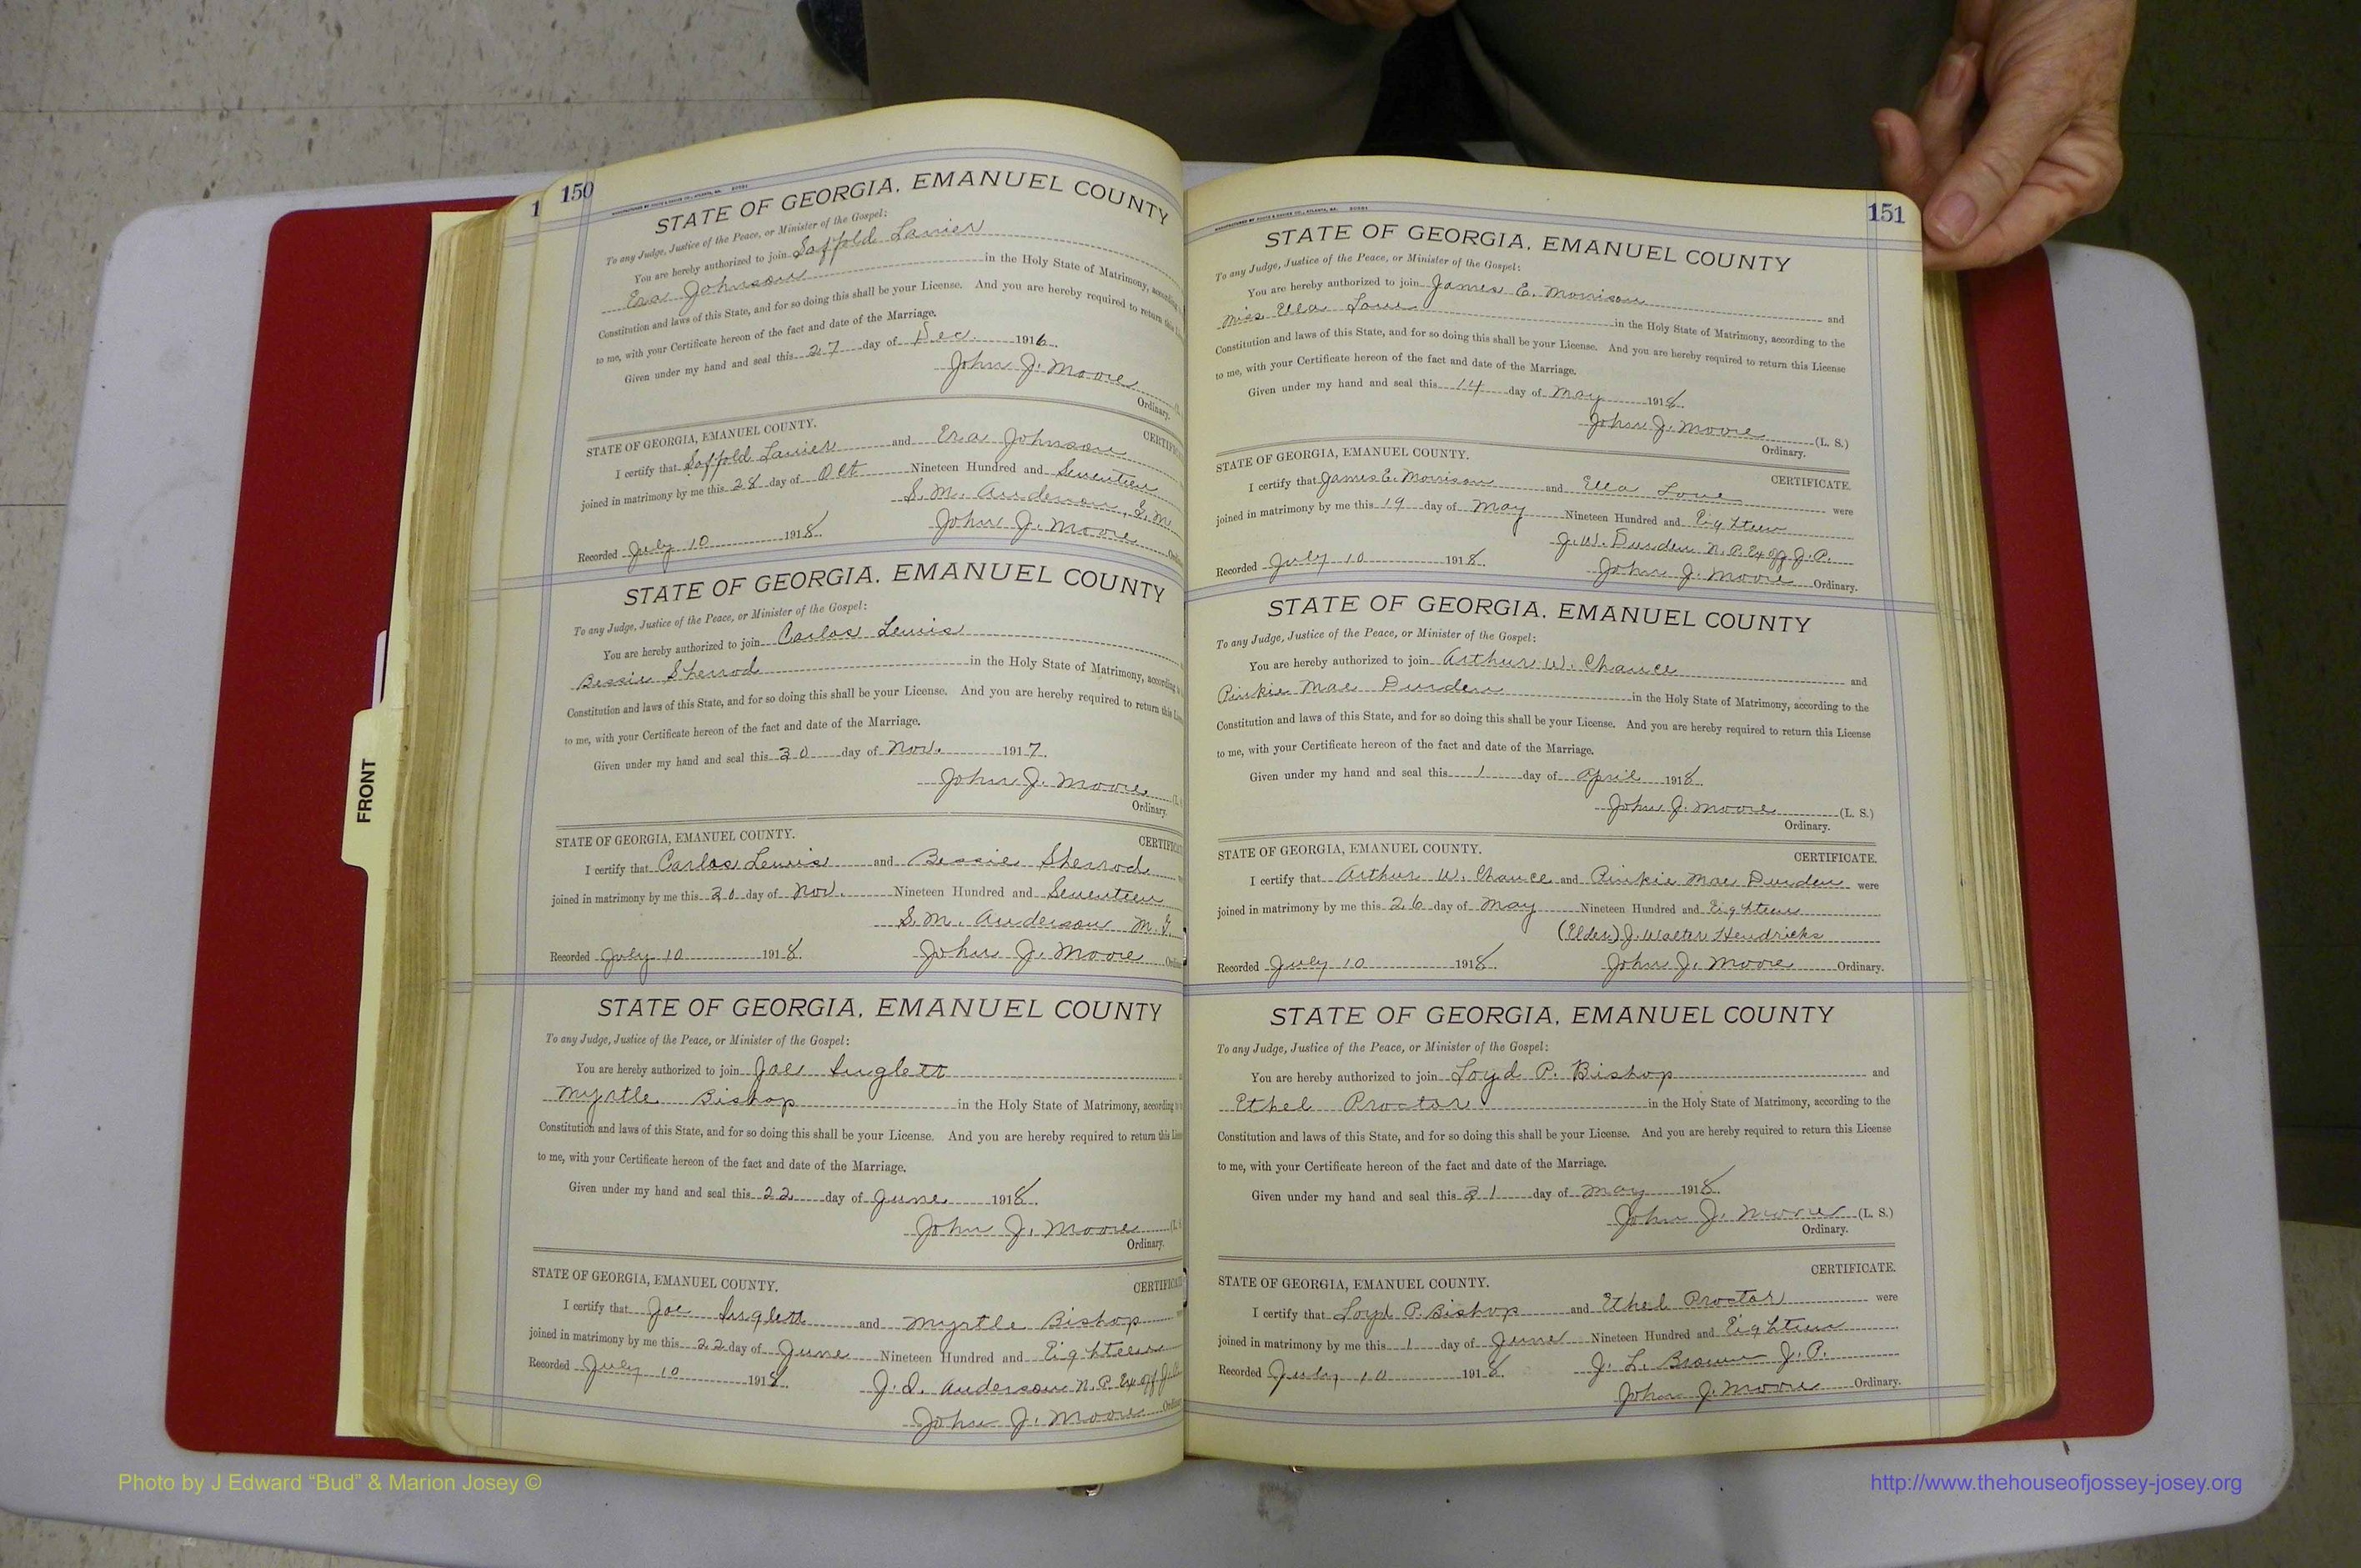 150
STATE OF GEORGIA, EMANUEL COUNTY
To any Judge, Justice of the Peace, or Minister of the Gospel:
You are hereby authorized to join Saffold Lanier
Era Johnson in the Holy State of Matrimony, according
Constitution and laws of this State, and for so doing this shall be your License. And you are hereby required to return this
to me, with your Certificate hereon of the fact and date of the Marriage.
Given under my hand and seal this 27 day of Dec. 1916.
John J. Moore
Ordinary.
STATE OF GEORGIA, EMANUEL COUNTY. CERTIFIC
I certify that Saffold Lanier and Era Johnson
joined in matrimony by me this 28 day of Oct Nineteen Hundred and Seventeen
S. M. Anderson,
Recorded July 10 1918. John J. Moore
STATE OF GEORGIA, EMANUEL COUNTY
To any Judge, Justice of the Peace, or Minister of the Gospel:
You are hereby authorized to join Carlos Lewis
Bessie Sherrod in the Holy State of Matrimony, according
Constitution and laws of this State, and for so doing this shall be your License. And you are hereby required to return this
to me, with your Certificate hereon of the fact and date of the Marriage.
Given under my hand and seal this 30 day of Nov. 1917.
John J. Moore
Ordinary.
STATE OF GEORGIA, EMANUEL COUNTY. CERTIFIC
I certify that Carlos Lewis and Bessie Sherrod
joined in matrimony by me this 30 day of Nov. Nineteen Hundred and Seventeen
S. M. Anderson M. G.
Recorded July 10 1918. John J. Moore
STATE OF GEORGIA, EMANUEL COUNTY
To any Judge, Justice of the Peace, or Minister of the Gospel:
You are hereby authorized to join Joe Inglett
Myrtle Bishop in the Holy State of Matrimony, according
Constitution and laws of this State, and for so doing this shall be your License. And you are hereby required to return this
to me, with your Certificate hereon of the fact and date of the Marriage.
Given under my hand and seal this 22 day of June 1918.
John J. Moore
Ordinary.
STATE OF GEORGIA, EMANUEL COUNTY. CERTIFIC
I certify that Joe Inglett and Myrtle Bishop
joined in matrimony by me this 22 day of June Nineteen Hundred and Eighteen
Recorded July 10 1918. J. D. Anderson N. P. Ex off
John J. Moore
151
STATE OF GEORGIA, EMANUEL COUNTY
To any Judge, Justice of the Peace, or Minister of the Gospel:
You are hereby authorized to join James E. Morrison and
Miss Ella Love in the Holy State of Matrimony, according to the
Constitution and laws of this State, and for so doing this shall be your License. And you are hereby required to return this License
to me, with your Certificate hereon of the fact and date of the Marriage.
Given under my hand and seal this 14 day of May 1918.
John J. Moore (L. S.)
Ordinary.
STATE OF GEORGIA, EMANUEL COUNTY. CERTIFICATE.
I certify that James E. Morrison and Ella Love were
joined in matrimony by me this 19 day of May Nineteen Hundred and Eighteen
J. W. Durden N. P. Ex off J. P.
Recorded July 10 1918. John J. Moore Ordinary.
STATE OF GEORGIA, EMANUEL COUNTY
To any Judge, Justice of the Peace, or Minister of the Gospel:
You are hereby authorized to join Arthur W. Chance and
Pinkie Mae Durden in the Holy State of Matrimony, according to the
Constitution and laws of this State, and for so doing this shall be your License. And you are hereby required to return this License
to me, with your Certificate hereon of the fact and date of the Marriage.
Given under my hand and seal this 1 day of April 1918.
John J. Moore (L. S.)
Ordinary.
STATE OF GEORGIA, EMANUEL COUNTY. CERTIFICATE.
I certify that Arthur W. Chance and Pinkie Mae Durden were
joined in matrimony by me this 26 day of May Nineteen Hundred and Eighteen
(Elder) J. Walter Hendricks
Recorded July 10 1918. John J. Moore Ordinary.
STATE OF GEORGIA, EMANUEL COUNTY
To any Judge, Justice of the Peace, or Minister of the Gospel:
You are hereby authorized to join Loyd P. Bishop and
Ethel Proctor in the Holy State of Matrimony, according to the
Constitution and laws of this State, and for so doing this shall be your License. And you are hereby required to return this License
to me, with your Certificate hereon of the fact and date of the Marriage.
Given under my hand and seal this 31 day of May 1918.
John J. Moore (L. S.)
Ordinary.
STATE OF GEORGIA, EMANUEL COUNTY. CERTIFICATE.
I certify that Loyd P. Bishop and Ethel Proctor were
joined in matrimony by me this 1 day of June Nineteen Hundred and Eighteen
J. L. Brown J. P.
Recorded July 10 1918. John J. Moore Ordinary.
FRONT
Photo by J Edward “Bud” & Marion Josey ©
http://www.thehouseofjossey-josey.org